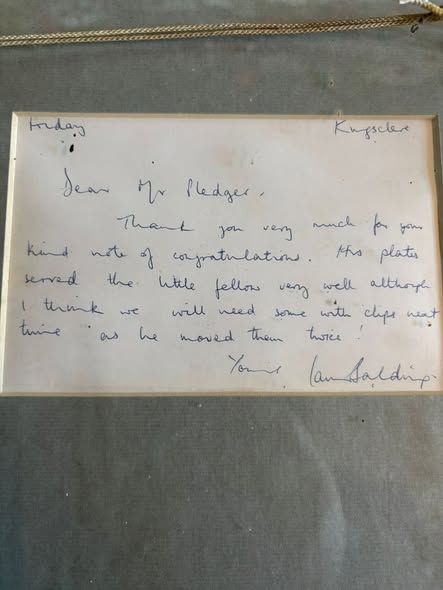 Friday Kingsclere
Dear Mr Pledger,
Thank you very much for your
kind note of congratulation. His plates
served the little fellow very well although
I think we will need some with clips next
time as he moved them twice!
Yours Ian Balding.